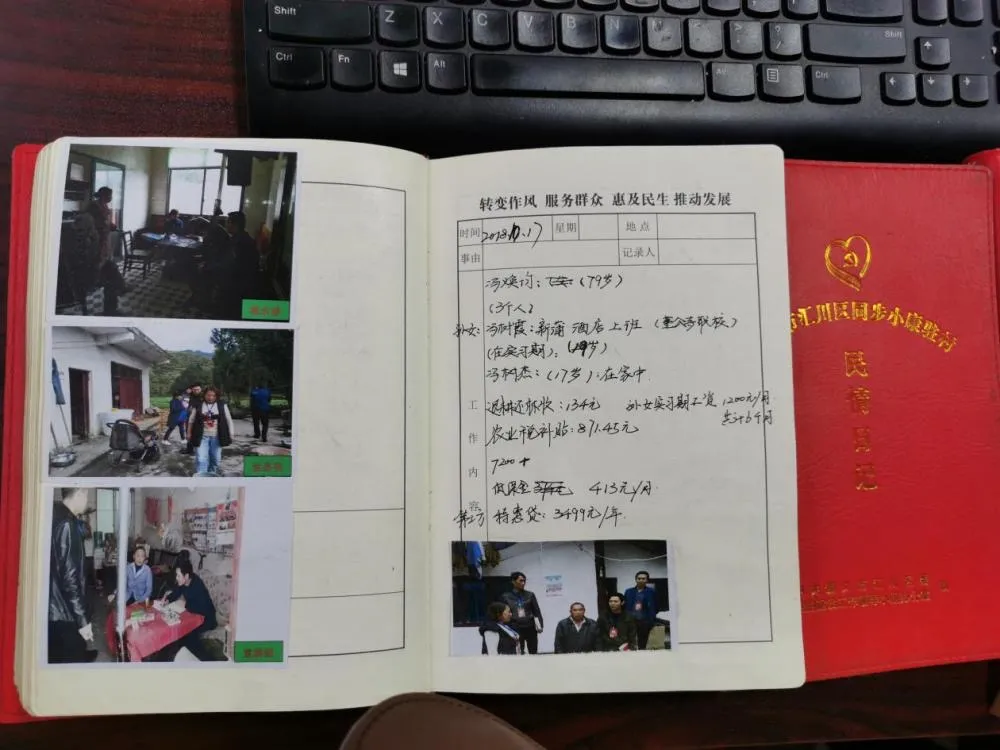 Shift
Z
X
C
V
B
N
M
Shift
Ctrl
Fn
Alt
Ctrl
转变作风 服务群众 惠及民生 推动发展
时间
2018.10.17
星期
地点
事由
记录人
(79岁)
(3个人)
孙女: 冯树霞: 新蒲酒店上班
(在实习期):
冯树杰: (17岁): 在家中.
工作内容
退耕还林收: 134元
孙女实习期工资 1200元/月
共计6个月
农业税补贴: 871.45元
7200+
低保金 413元/月
特惠贷: 3499元/年.
汇川区同步小康驻村
民情日记